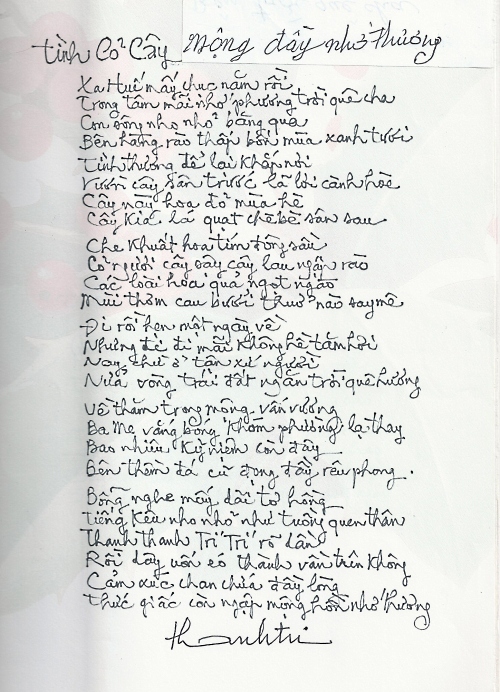 Tình Cỏ Cây Mộng đầy nhớ thương
Xa Huế mấy chục năm rồi
Trong tâm mãi nhớ phương trời quê cha
Con sông nho nhỏ băng qua
Bên hàng rào thấp bốn mùa xanh tươi
Tình thương để lại khắp nơi
Vườn cây sân trước là lời cành hoè
Cây này hoa đỏ mùa hè
Cây kia lá quạt chè bè sân sau
Che khuất hoa tím sầu
Cỏ người cây cây lau ngập rào
Các loài hoa quả ngọt ngào
Mùi thơm cau bưởi thuở nào say mê
Đi rồi hẹn một ngày về
Nhưng đi mãi không hề tăm hơi
Nay chừ ở tận xứ người
Nửa vòng trái đất ngăn trời quê hương
Về thăm trong mộng vấn vương
Ba Mẹ vắng bóng khóm phường lạ thay
Bao nhiêu kỷ niệm còn đây
Bên thềm đá cũ đọng đầy rêu phong.
Bỗng nghe mấy dãi tơ hồng
Tiếng kêu nho nhỏ như tuồng quen thân
Thanh thanh Trí Trí rõ dần
Rồi dây uốn éo thành vần trên không
Cảm xúc chan chứa đầy lòng
Thức giấc còn ngập mộng hồn nhớ thương
thanhtri